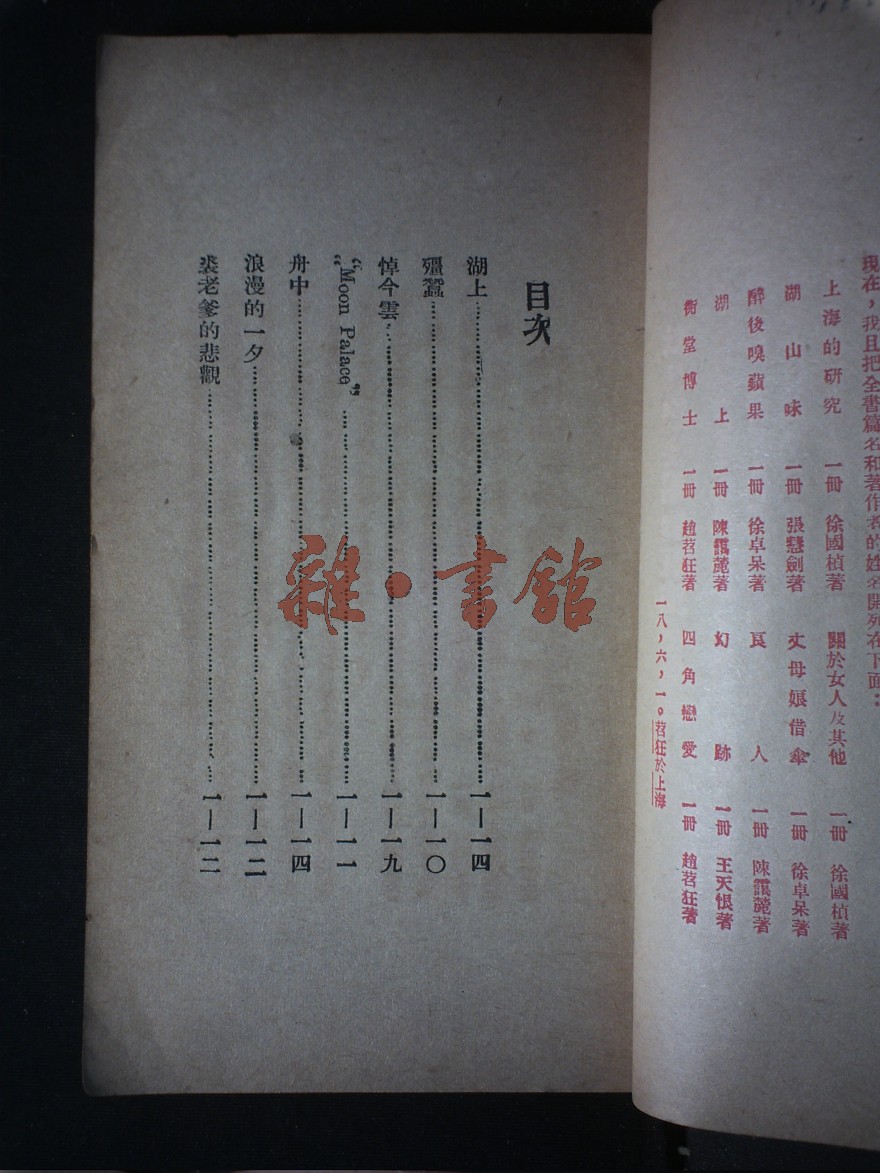 現在，我且把全書篇名和著作者的姓名開列在下面：
上海的研究 一冊 徐國楨著 關於女人及其他 一冊 徐國楨著
湖山味 一冊 張慧劍著 丈母娘借傘 一冊 徐卓呆著
醉後嗅蘋果 一冊 徐卓呆著 良人 一冊 陳靄麓著
湖上 一冊 陳靄麓著 幻跡 一冊 王天恨著
衖堂博士 一冊 趙苕狂著 四角戀愛 一冊 趙苕狂著
一八，六，一。苕狂於上海
目次
湖上 一—一四
殭蠶 一—一〇
悼今雲 一—一九
“Moon Palace” 一—一一
舟中 一—一四
浪漫的一夕 一—一二
裘老爹的悲觀 一—一二
雜·書館